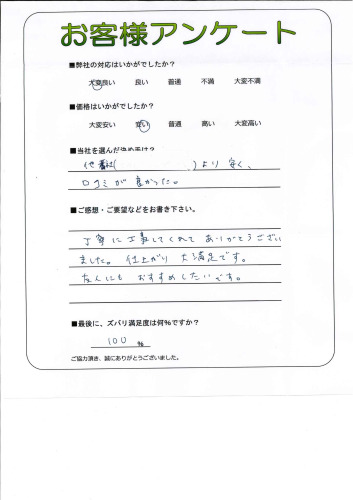 お客様アンケート
■弊社の対応はいかがでしたか?
大変良い 良い 普通 不満 大変不満
■価格はいかがでしたか?
大変安い 安い 普通 高い 大変高い
■当社を選んだ決め手は?
他社( )より安く、
口コミが良かった。
■ご感想・ご要望などをお書き下さい。
丁寧に工事してくれてありがとうござい
ました。仕上がり大満足です。
友人にもおすすめしたいです。
■最後に、ズバリ満足度は何%ですか?
100 %
ご協力頂き、誠にありがとうございました。